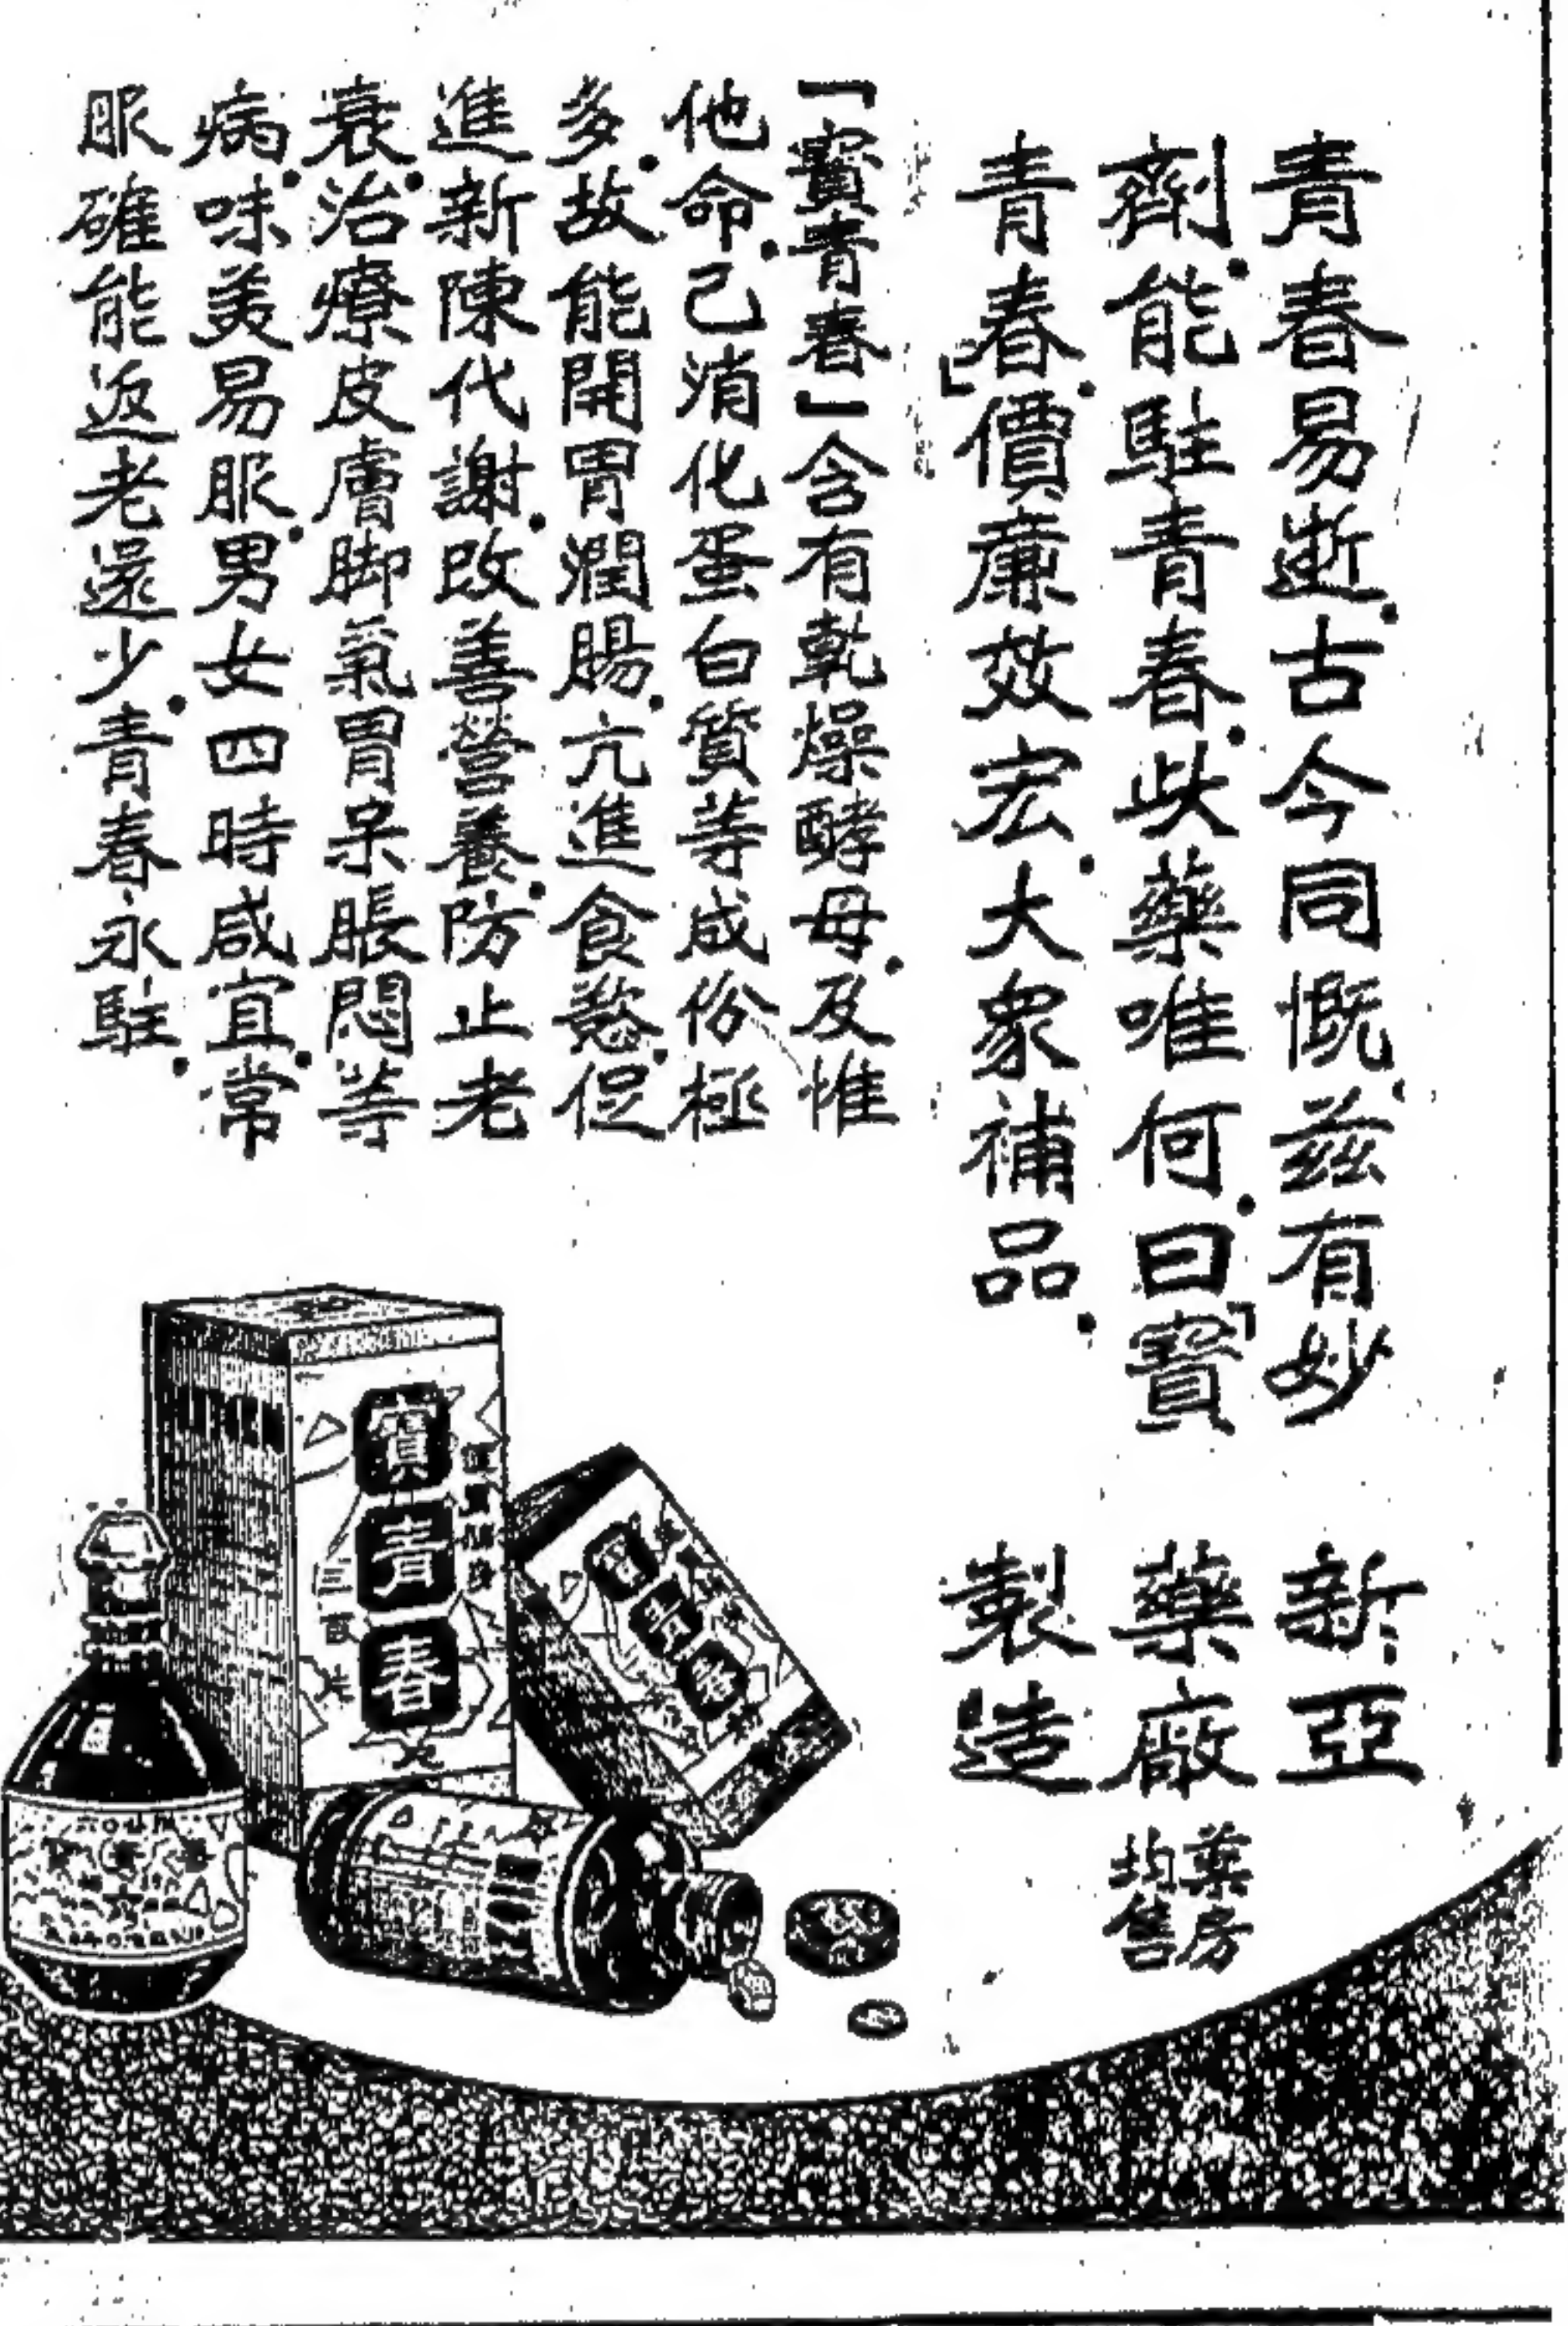 青春易逝．古今同慨．茲有妙
劑．能駐青春．此藥唯何．曰「寶
青春」．價廉效宏．大衆補品．
「寶青春」含有乾燥酵母．及惟
他命．己消化蛋白質等成份極
多．故能開胃潤腸．亢進食慾．促
進新陳代謝．改善營養．防止老
衰．治療皮膚脚氣胃呆脹悶等
病．味美易服．男女四時咸宜．常
服確能返老還少．青春永駐．
新亞
藥廠
製造
藥房
均售
寶青春
寶青春